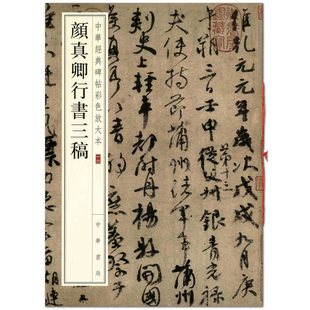 中華經典碑帖彩色放大本
顏真卿行書三稿
中華書局
乾元元年歲次戊戌九月庚
朔三日壬申
第十三
銀青光
蒲州諸軍事蒲州
刺史上輕車都尉丹楊縣開國